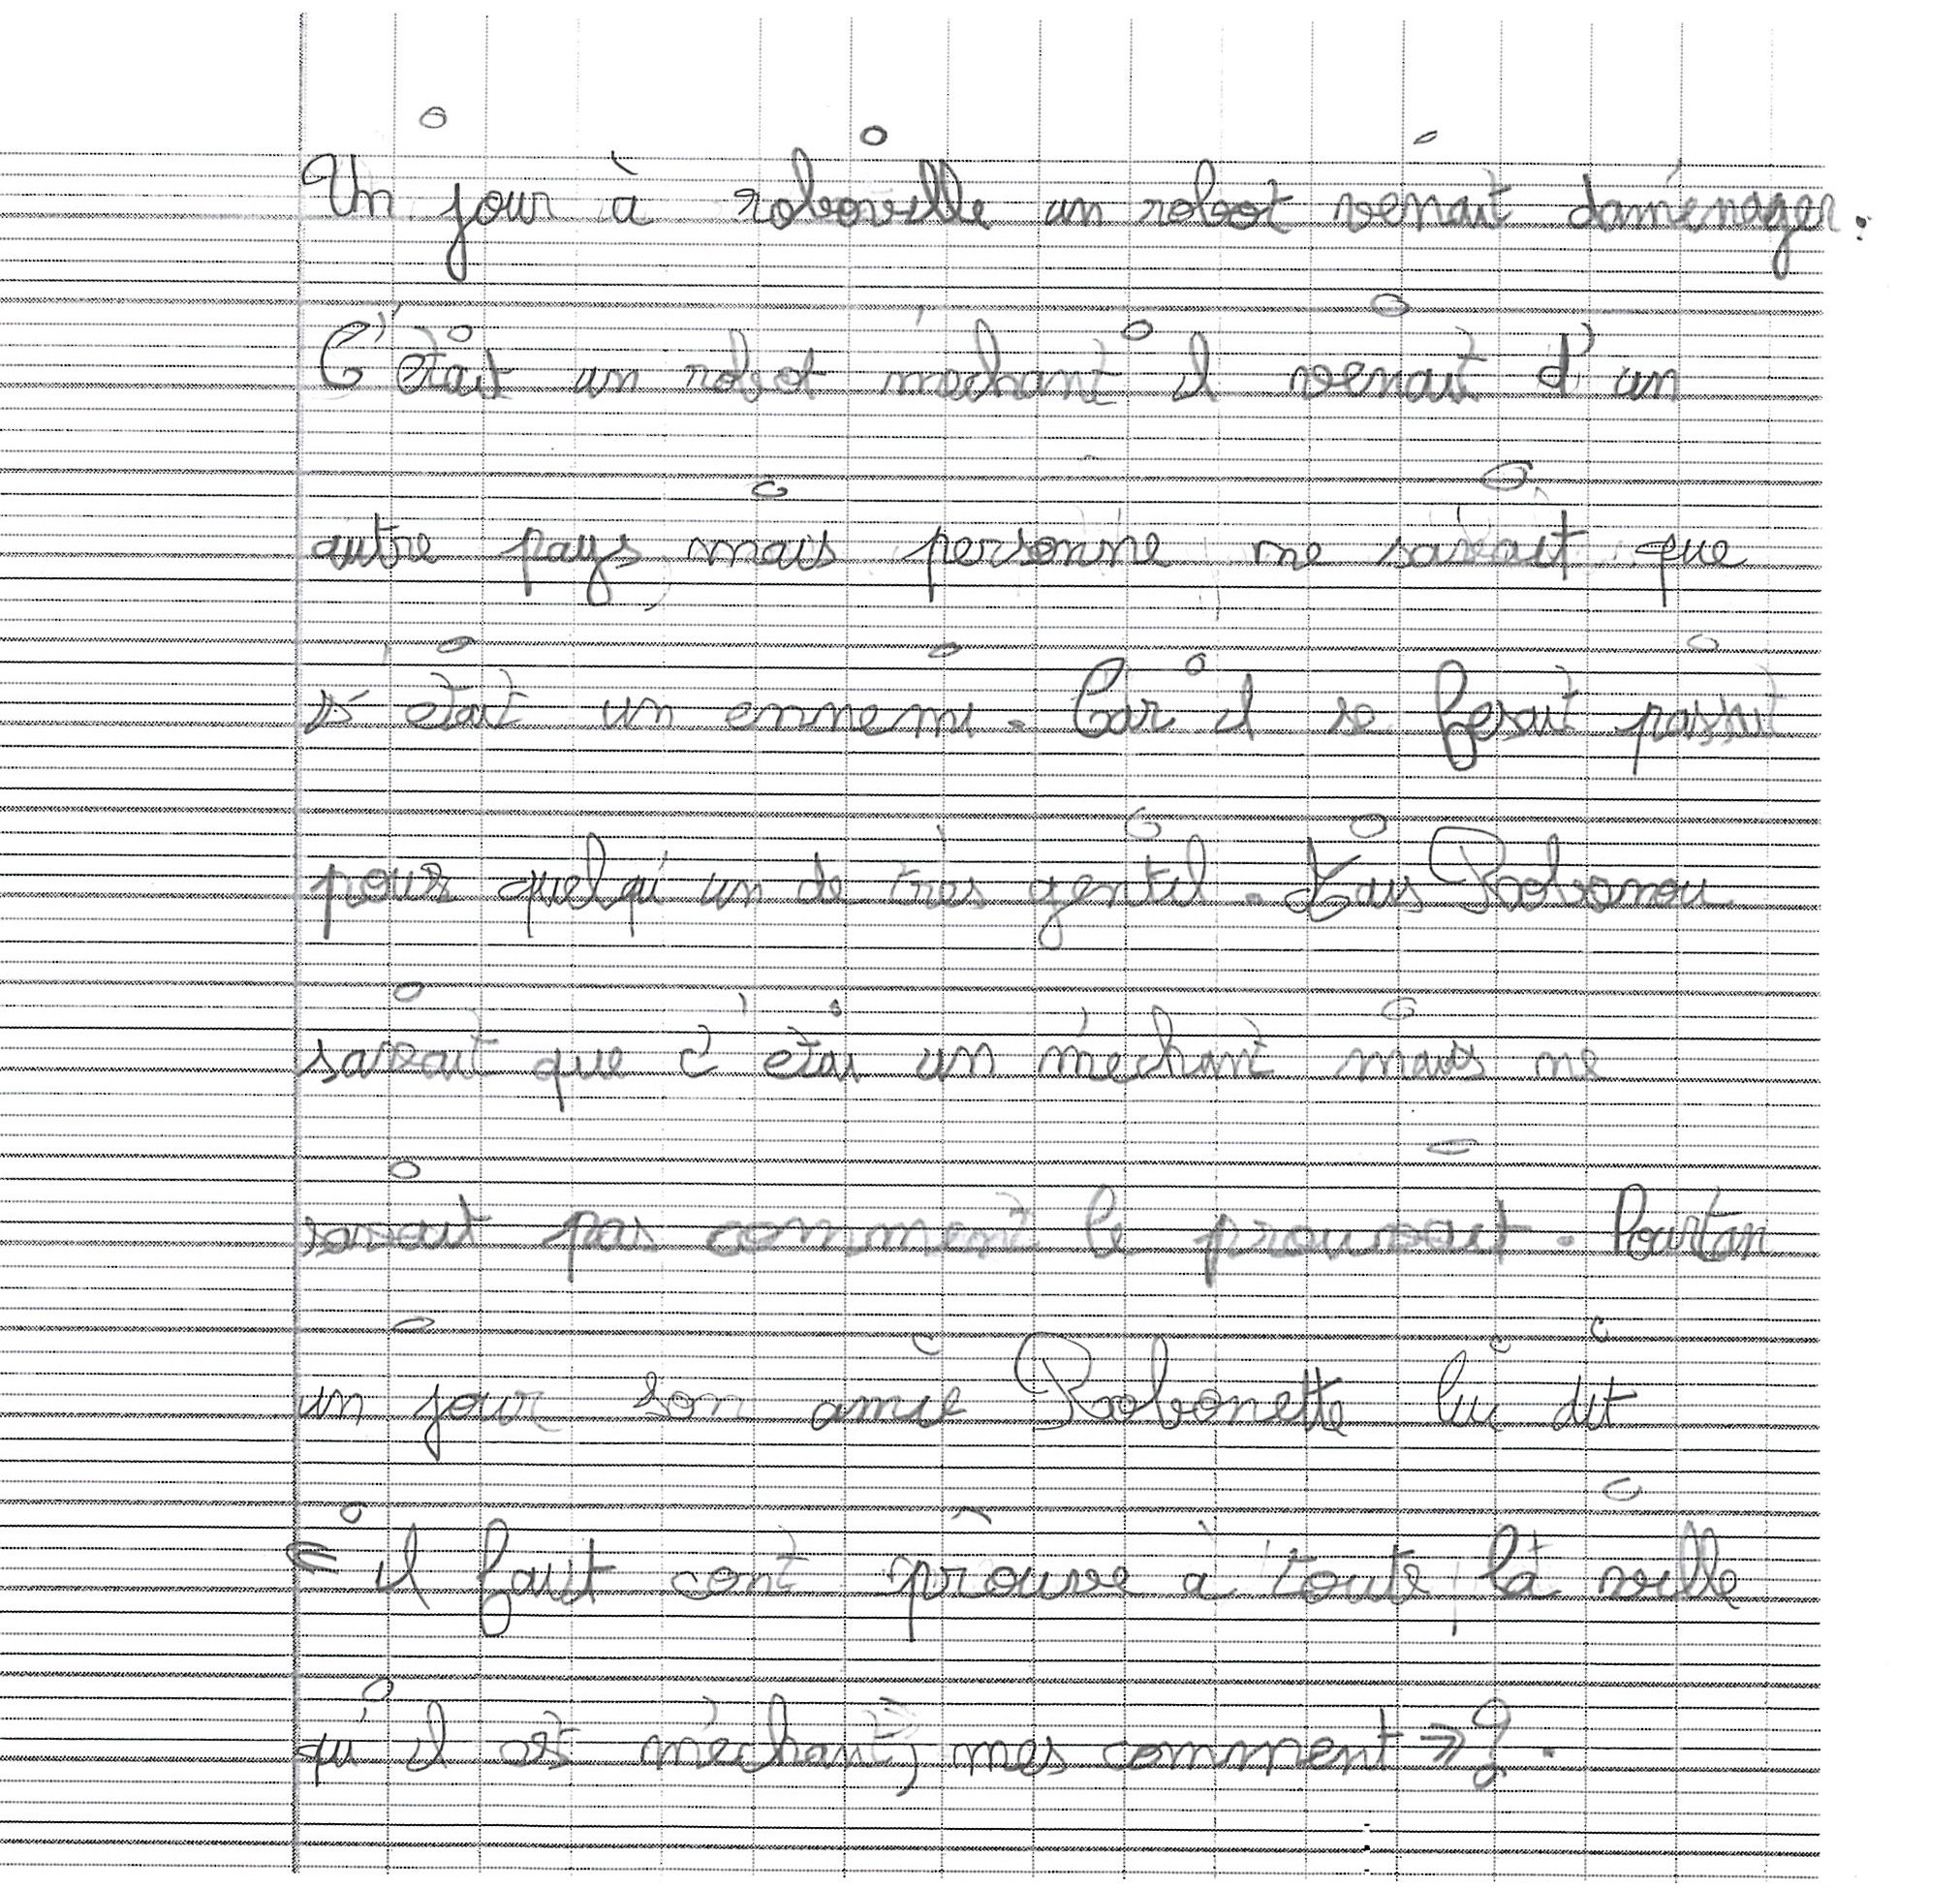 Un jour à roboville un robot venait daménager.
C'était un robot méchant il venait d'un
autre pays, mais personne ne savait que
s'était un ennemi. Car il se fesait passait
pour quelqu'un de très gentil. Robonou
savait que c'étai un méchant mais ne
savait pas comment le prouvait. Pourtan
un jour son amie Robonette lui dit
« il faut cont prouve à toute la ville
qu'il est méchant, mes comment » ?.